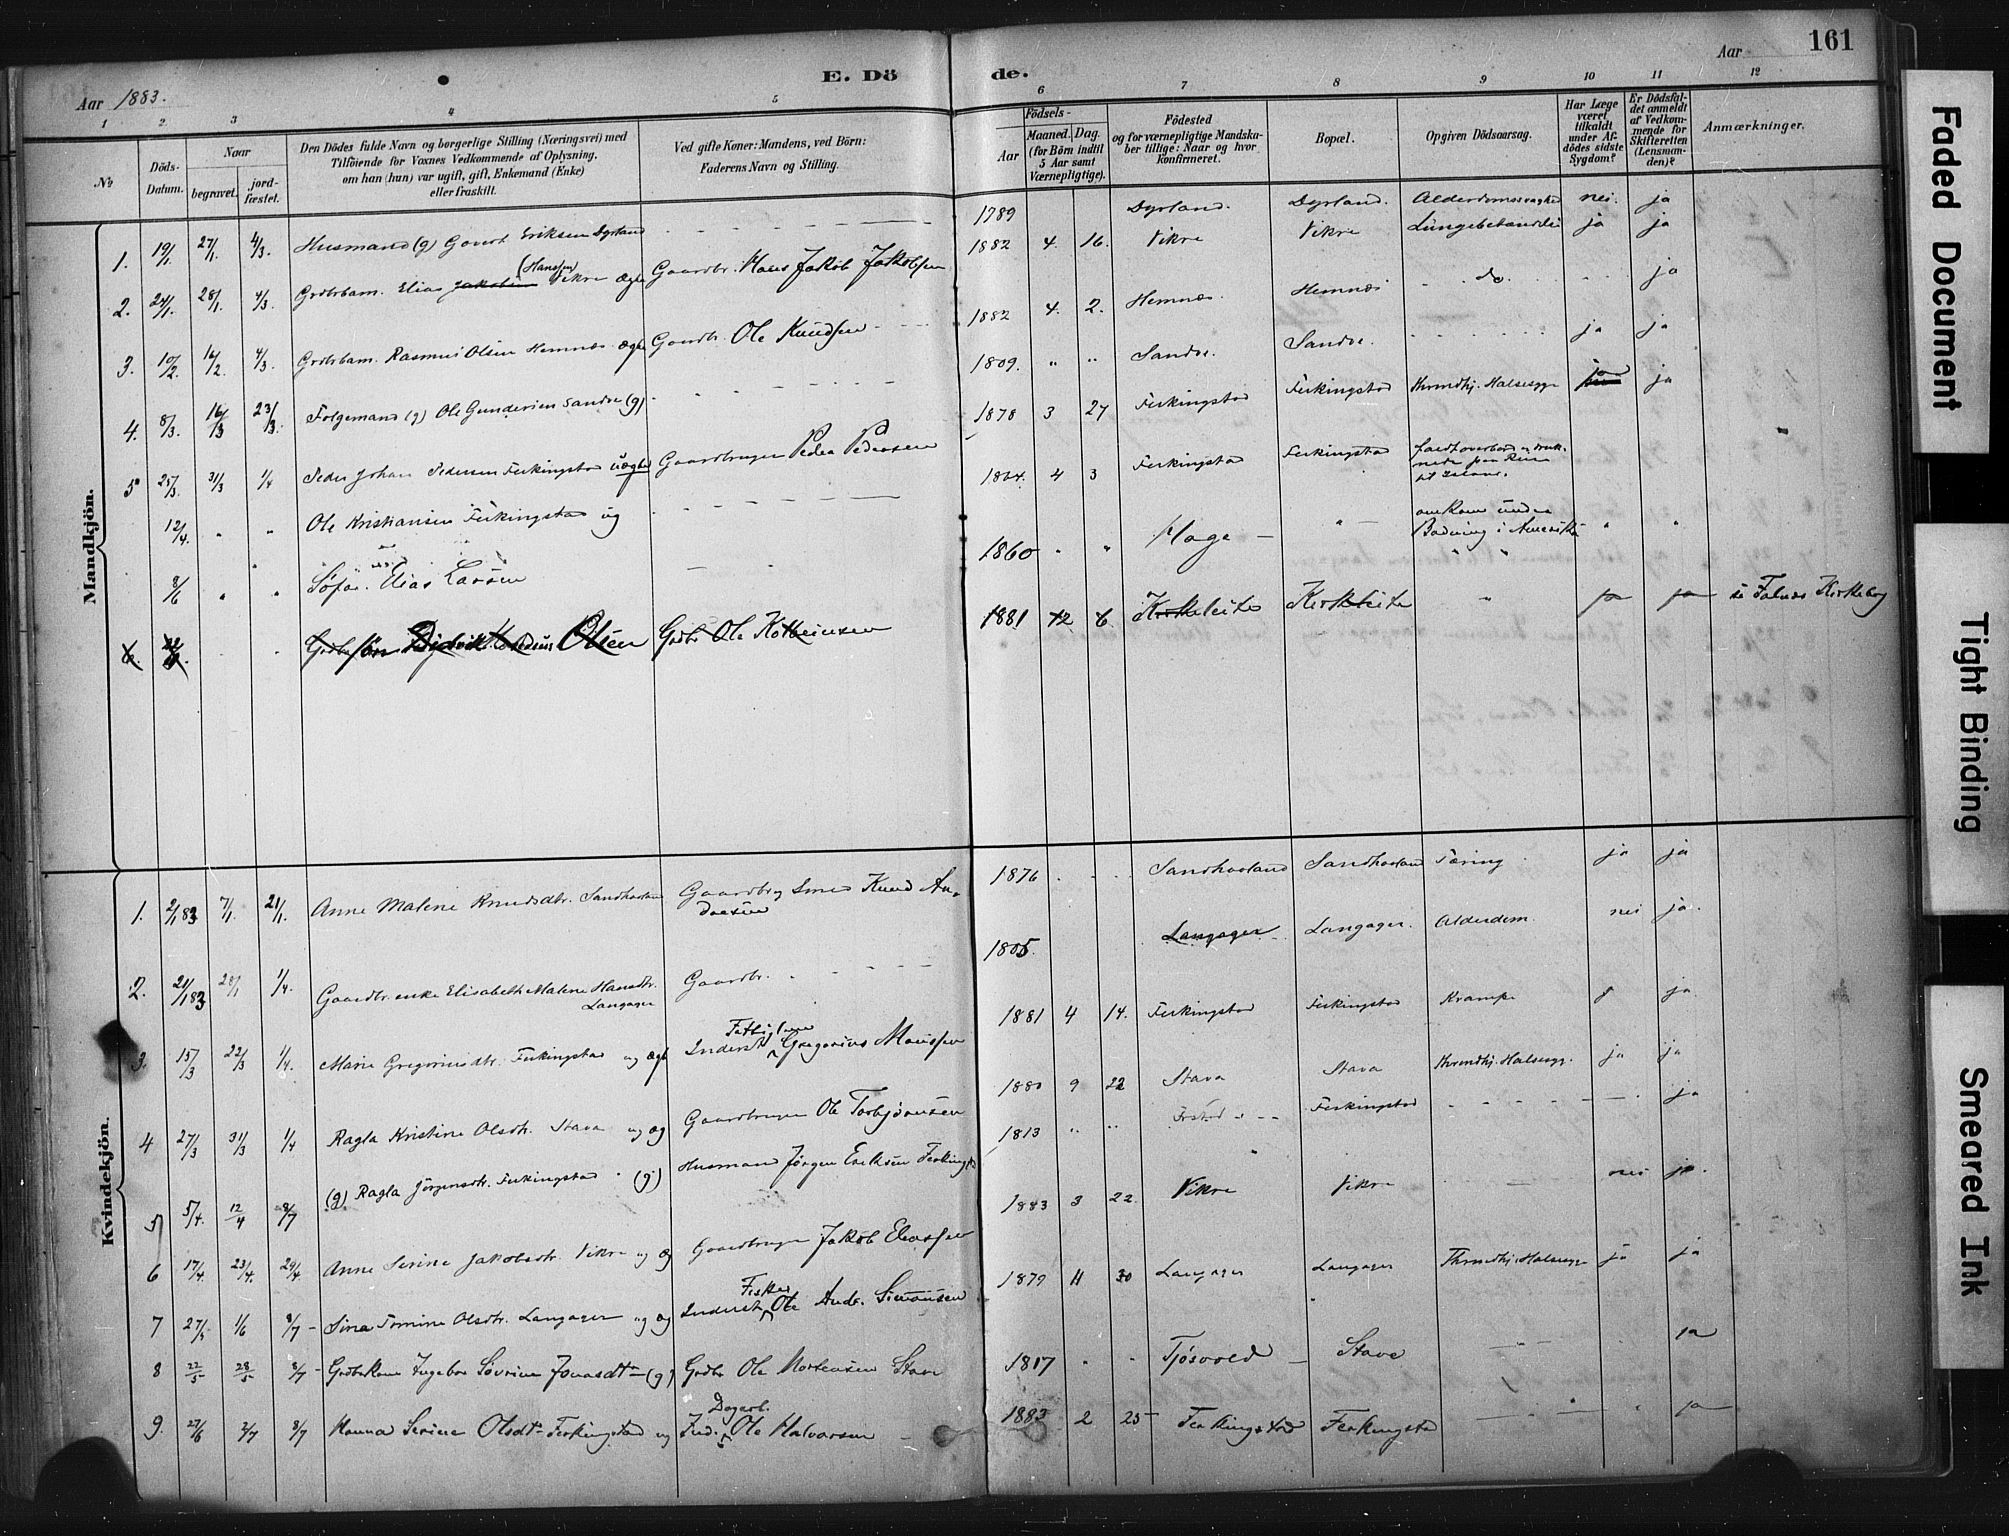 161
Aar 1883.
E. Dö
de.
Aar
1 2 3 4 5 6 7 8 9 10 11 12
№
Döds-Datum.
Naar
begravet.
jord-fæstet.
Den Dödes fulde Navn og borgerlige Stilling (Næringsvei) med
Tilföiende for Voxnes Vedkommende af Oplysning,
om han (hun) var ugift, gift, Enkemand (Enke)
eller fraskilt.
Ved gifte Koner: Mandens, ved Börn:
Faderens Navn og Stilling.
Födsels-
Aar
Maaned. Dag.
(for Börn indtil
5 Aar samt
Værnepligtige).
Födested
og for værnepligtige Mandska-
ber tillige: Naar og hvor
konfirmeret.
Bopæl.
Opgiven Dödsaarsag.
Har Læge
været
tilkaldt
under Af-
dödes sidste
Sygdom?
Er Dödsfal-
det anmeldt
af Vedkom-
mende for
Skifteretten
(Lensman-
den)?
Anmærkninger.
Mandkjön.
1. 19/1. 27/1. 4/3. Husmand (g) Govert Eriksen Dyrland 1789 Dyrland. Dyrland. nei. ja
2. 24/1. 28/1. 4/3. Grdbrbarn. Elias Jakobsen (Hanssen) Vikre ægte Gaardbr. Hans Jakob Jakobsen 1882 4. 16. Vikre Vikre Lungebetændelse ja ja
3. 10/2. 16/2. 4/3. Grdbrbarn. Rasmus Olsen Hemnes ægte Gaardbr. Ole Knudsen 1882 4. 2. Hemnes. Hemnes do. ja
4. 8/3. 16/3 23/3. Folgemand (g) Ole Gundersen Sandve (g) 1809. " " Sandve. Sandve. ja ja
5 25/3. 31/3 1/4 Peder Johan Pedersen Ferkingstad uægte Gaardbruger Peder Pedersen 1878 3 27 Ferkingstad Ferkingstad Hrendhj. Halsesyge ja ja
12/4. " " Ole Kristiansen Ferkingstad ug 1864. 4 3 Ferkingstad Ferkingstad faldt overbord og druk-
nede paa Reise
til Island.
8/6 " " Elias Larsen 1860 " " Hage — " — omkom under
Badning i Amerika " "
6. Olsen Grdbr Ole Kolbeinsen 1881 12 6 Kirkeleite Kirkeleite " ja ja i Falnes Kirkebog
Kvindekjön.
1. 2/1 83 7/1. 21/1. Anne Malene Knudsdtr. Sandhaaland Gaardbr og Smed Knud An-
dersen 1876 Sandhaaland Sandhaaland Tæring ja ja
2. 21/1 83 28/1 1/4. Gaardbr. enke Elisabeth Malene Hansdtr.
Langager Gaardbr. 1805. Langager Langager. Alderdom. nei ja.
3. 15/3 22/3 1/4. Marie Gregoriusdtr. Ferkingstad ug ægte Inderst Gregorius Monssen 1881 4 14. Ferkingstad Ferkingstad Krampe ja
4 27/3 31/3 1/4 Ragla Kristine Olsdtr. Stava ug æg Gaardbruger Ole Torbjörnsen 1880 9 22 Stava Stava Hrendhj. Halsesyg. ja ja
5 5/4. 12/4 8/7 (g). Ragla Jörgensdtr. Ferkingstad (g) Husmand Jörgen Eriksen Ferkingst 1813 " " Ferkingstad ja
6 17/4. 23/4. 29/4. Anne Serine Jakobsdtr. Vikre ug æg Gaardbruger Jakob Eliassen 1883 3 22. Vikre Vikre nei ja
7 27/5 1/6 8/7 Sina Tomine Olsdtr. Langager ug æg Inderst Fisker Ole Andr. Simonsen 1879 11 30 Langager Langager Threndhj. Halsesyge ja ja
8 22/5 28/5 8/7 Grdbrkone Ingebor Sövrine Jonasdtr (g) Grdbr Ole Mortensen Stave 1817 Tjösvold Stave ja
9. 27/6 2/7 8/7 Hanna Serine Olsdtr Ferkingstad ug Ind. Dagarb. Ole Halvorsen 1883 2 25 Ferkingstad Ferkingstad ja
Faded Document
Tight Binding
Smeared Ink